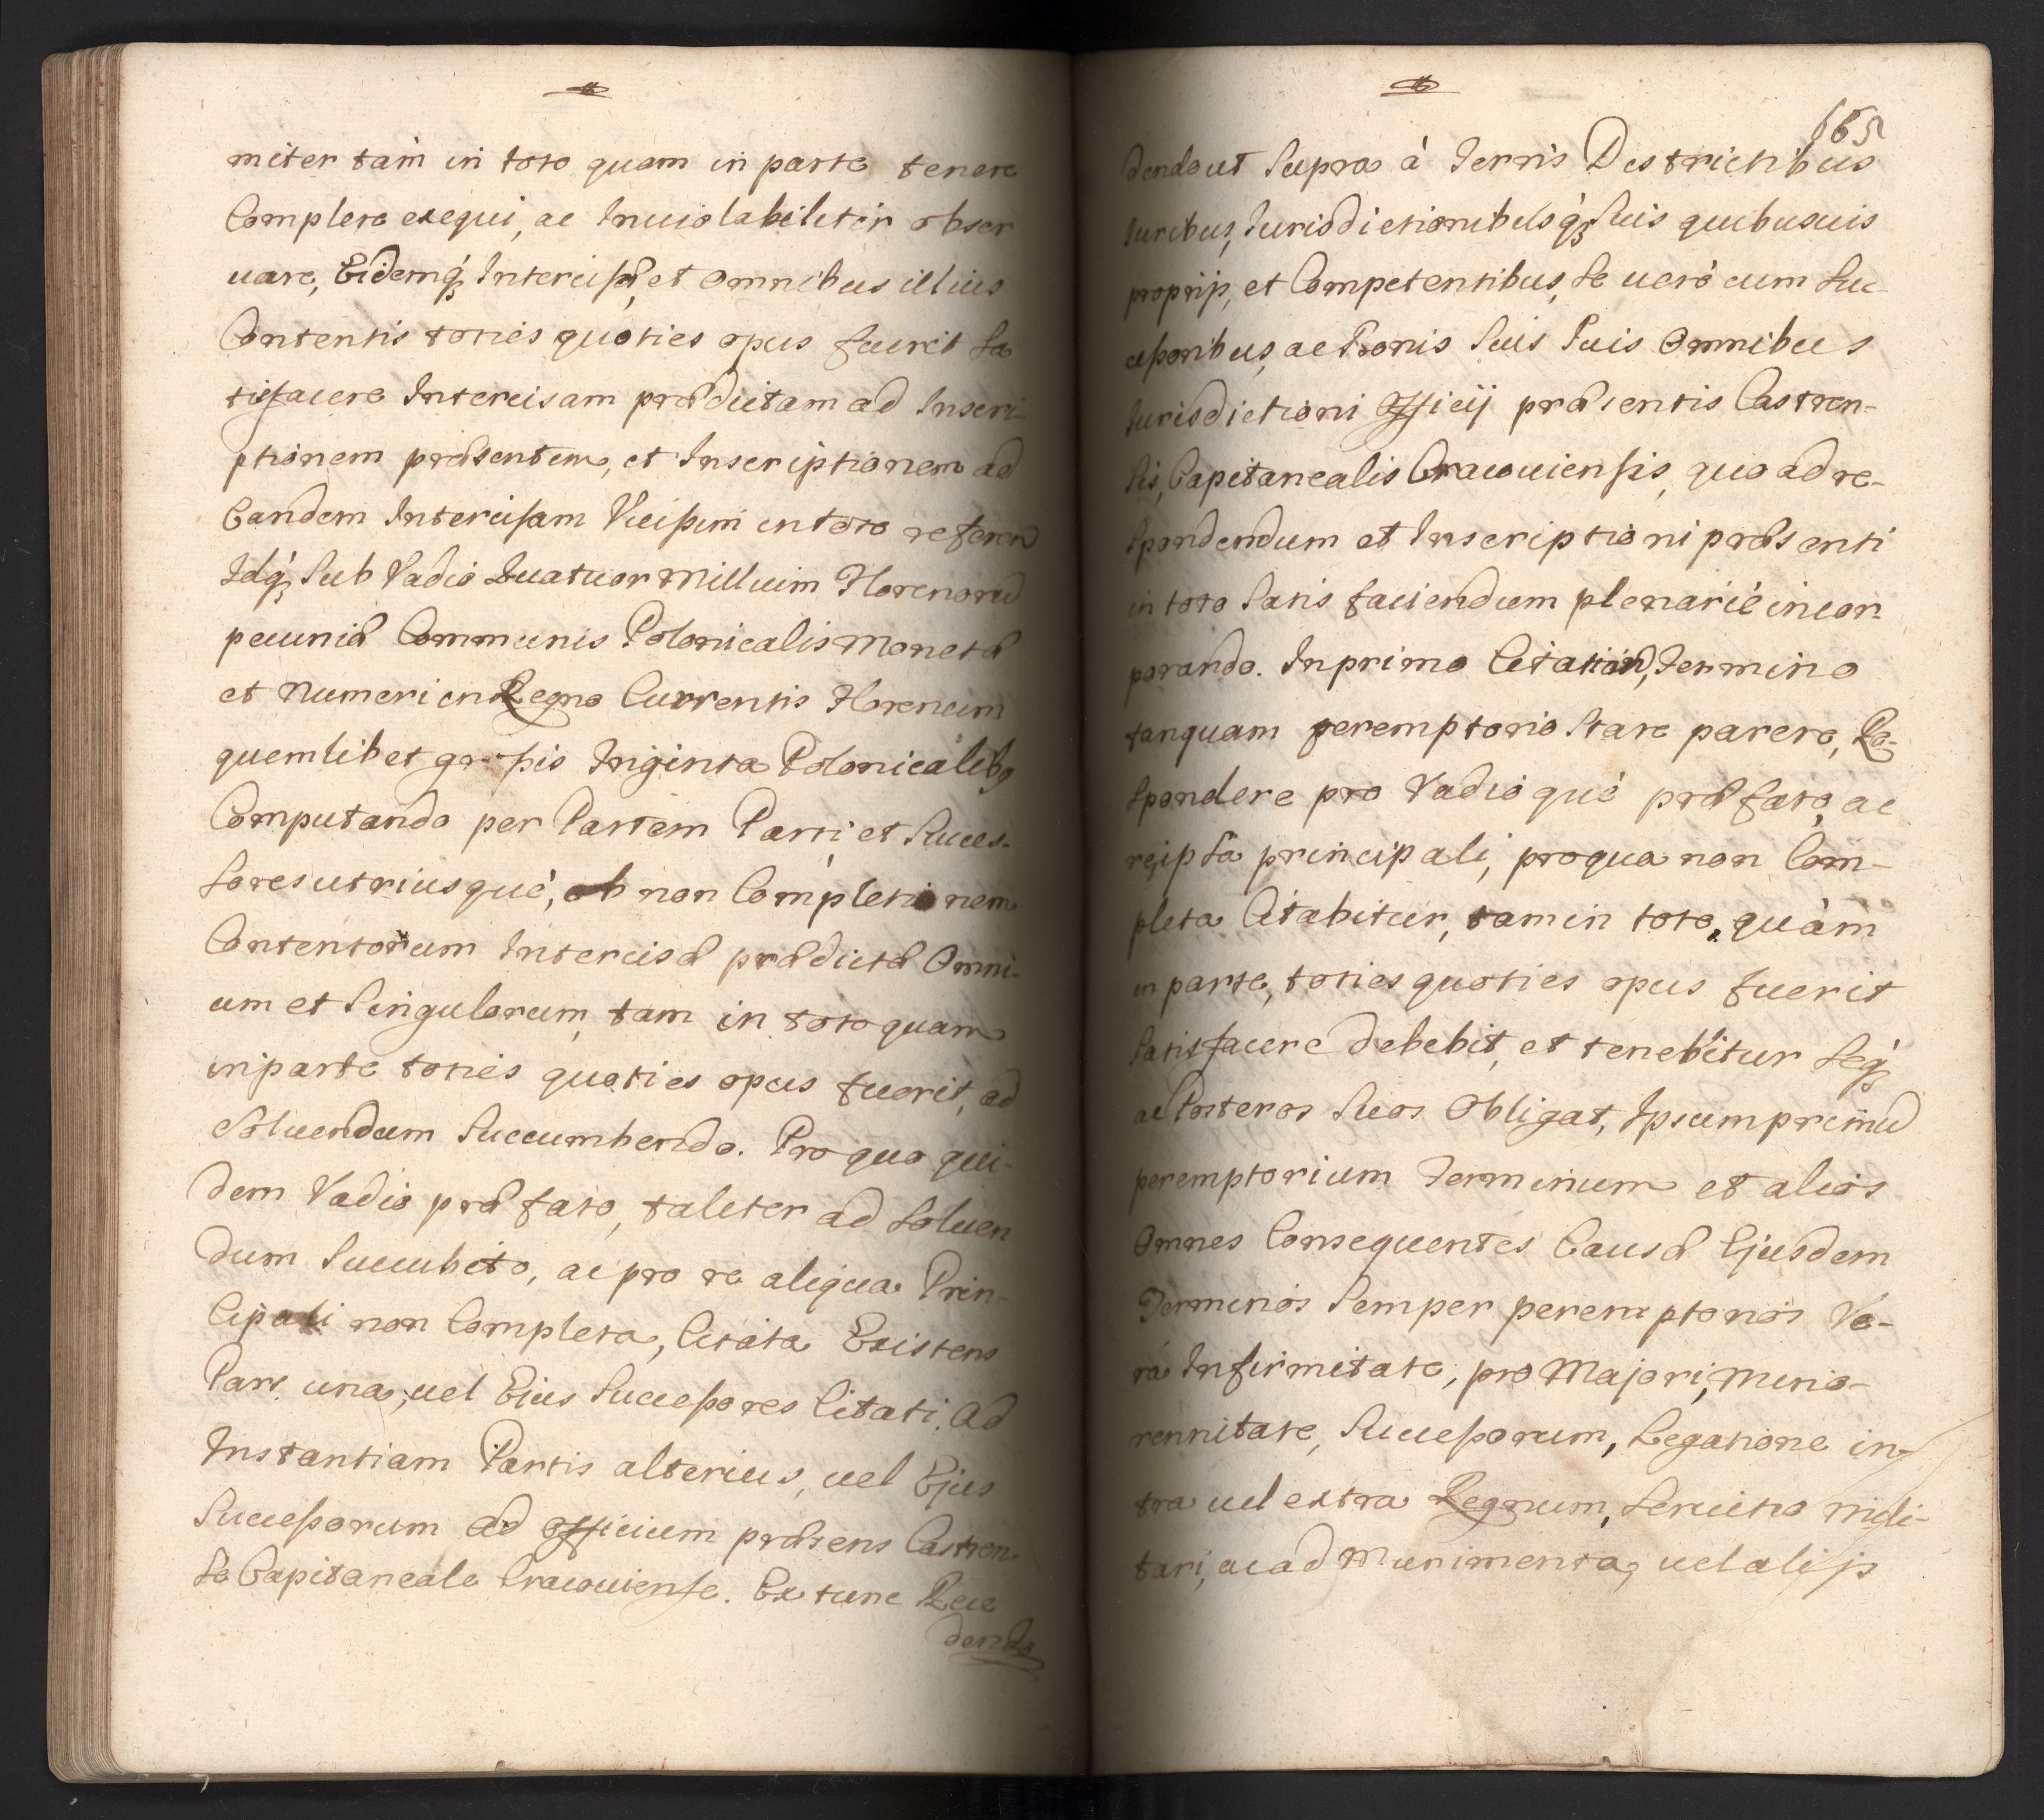 miter tàm in toto quam in parte tenere
Complere exequi, ac Inuiolabilitèr obser
uare, Eidemq́ꝫ Intercisæ, et omnibus illius
Contentis toties quoties opus fuerit sa
tisfacere Intercisam prædictam ad Inscri-
ptionem præsentem, et Inscriptionem ad
Eandem Intercisam Vicißim in toto referen
Idq́ꝫ sub Vadio Quatuor Millium Florenorũ
pecuniæ Communis Polonicalis Monetæ
et Numeri in Regno Currentis Florenum
quemlibet großis Triginta Polonicalibꝫ
Computando per Partem Parti et Succes-
sores utriusquè, ob non Completionem
Contentorum Intercisæ prædictæ Omni-
um et Singulorum, tam in toto quam
in parte toties quoties opus fuerit, ad
Soluendum Succumbendo. Pro quo qui-
dem Vadio præfato, taliter ad Soluen
dum Succubito, ac pro re aliqua Prin-
cipali non Completa, Citata Existens
Pars una, uel Ejus Succeßores Citati. Ad
Instantiam Partis alterius, uel Ejus
Succeßorum Ad Officium præsens Castren-
se Capitaneale Cracouiense. Ex tunc Rece
dendo
165
dendo ut supra à Terris Districtibus
Iuribus, Iurisdictionibusq́ꝫ suis quibusuis
proprijs, et Competentibus, se uerò cum Suc-
ceßoribus, ac Bonis Suis Suis Omnibus
Iurisdictioni Officij præsentis Castren-
sis, Capitanealis Cracouiensis, quo ad re-
spondendum et Inscriptioni præsenti
in toto satis faciendum plenariè incor-
porando. In primo Citationis, Termino
tanquam peremptorio Stare parere, Re-
spondere pro Vadio què præfato, ac
rejpsa principali, pro qua non Com-
pleta Citabitur, tam in toto, quàm
in parte, toties quoties opus fuerit
Satisfacere debebit, et tenebitur Seq́ꝫ
ac Posteros Suos Obligat, Ipsum primũ
peremptorium Terminum et alios
Omnes Consequentes Causæ Ejusdem
Terminos Semper peremptorios Ve-
ra Infirmitate, pro Majori, Mino-
rennitate, Succeßorum, Legatione in-
tra uel extra Regnum, Seruitio mili-
tari, ac ad Munimenta, uel alijs